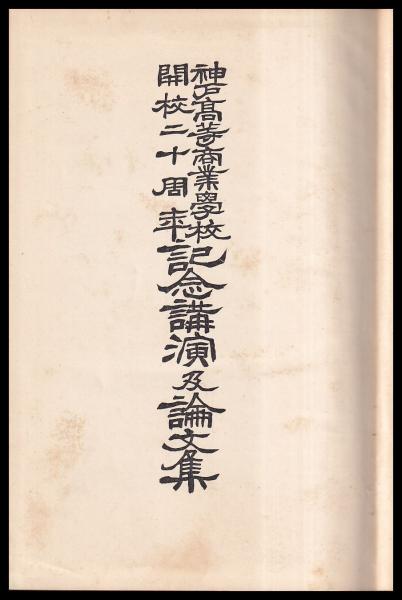 神戸高等商業學校
開校二十周年
記念講演及論文集